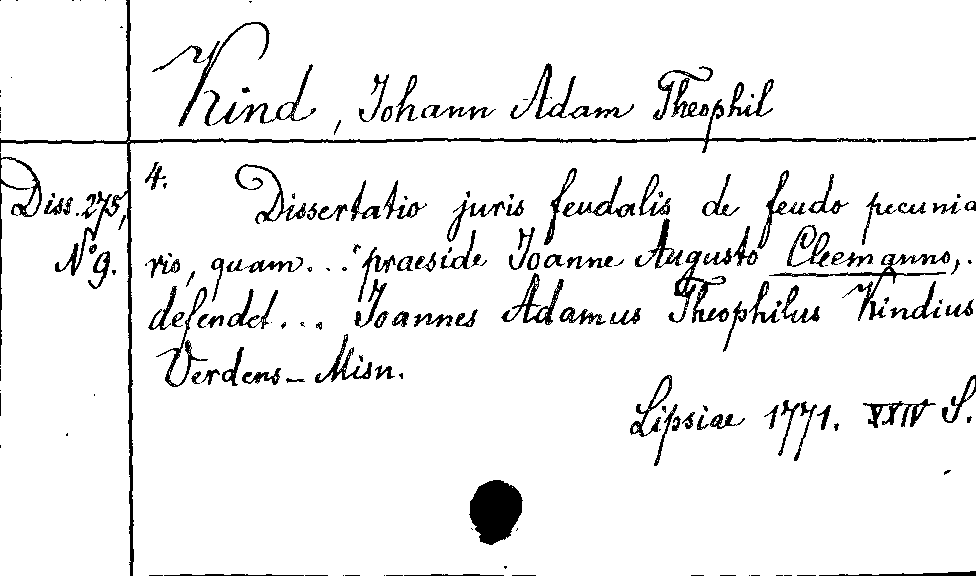 Kind, Johann Adam Theophil
4.
Diss. 275,
Nº 9.
Dissertatio juris feudalis de feudo pecunia
rio, quam... praeside Joanne Augusto Cleemanno,.
defendet... Joannes Adamus Theophilus Kindius
Verdens-Misn.
Lipsiae 1771. XXIV S.